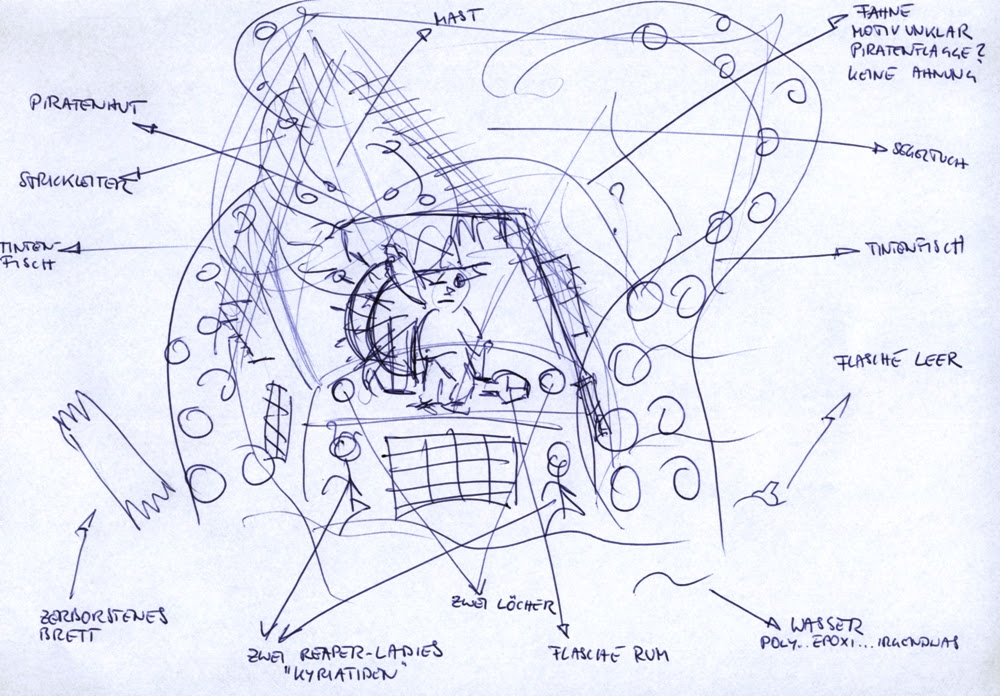 MAST
FAHNE
MOTIV UNKLAR
PIRATENFLAGGE?
KEINE AHNUNG
PIRATENHUT
STRICKLEITER
SEGELTUCH
TINTEN-
FISCH
?
TINTENFISCH
FLASCHE LEER
ZERBORSTENES
BRETT
ZWEI LÖCHER
ZWEI REAPER-LADIES
"KYRIATIDEN"
FLASCHE RUM
WASSER
POLY.. EPOXI... IRGENDWAS